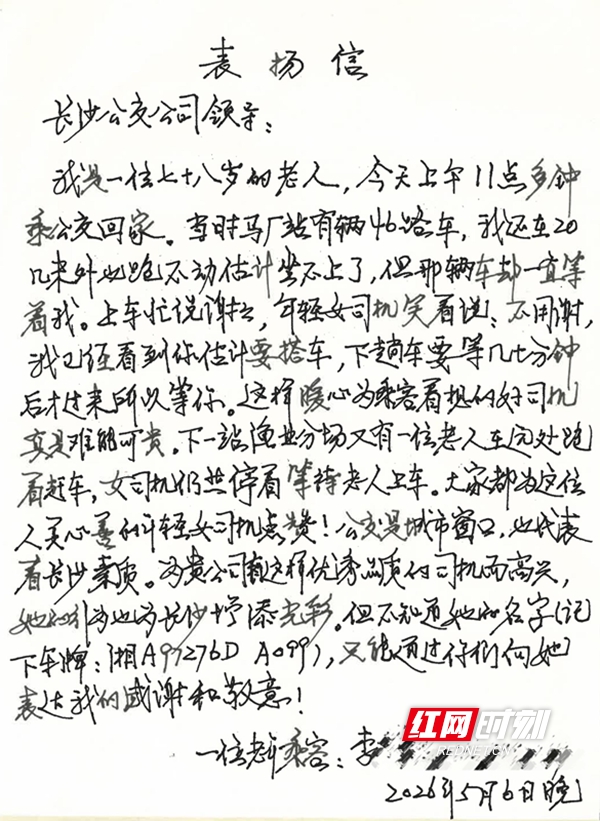 表扬信
长沙公交公司领导：
我是一位七十八岁的老人，今天上午11点多钟
乘公交回家。当时马厂站有辆46路车，我还在20
几米外也跑不动估计坐不上了，但那辆车却一直等
着我。上车忙说谢谢，年轻女司机笑着说：不用谢，
我已经看到你估计要搭车，下趟车要等几十分钟
后才过来所以等你。这样暖心为乘客着想的好司机
真是难能可贵。下一站渔业分场又有一位老人在远处跑
着赶车，女司机仍然停着等待老人上车。大家都为这位
人美心善的年轻女司机点赞！公交是城市窗口，也代表
着长沙素质。为贵公司有这样优秀品质的司机而高兴，
她的行为也为长沙增添光彩。但不知道她的名字（记
下车牌：湘A97276D A099），只能通过你们向她
表达我的感谢和敬意！
一位老年乘客：李
2026年5月6日晚
红网时刻
REDNET.CN